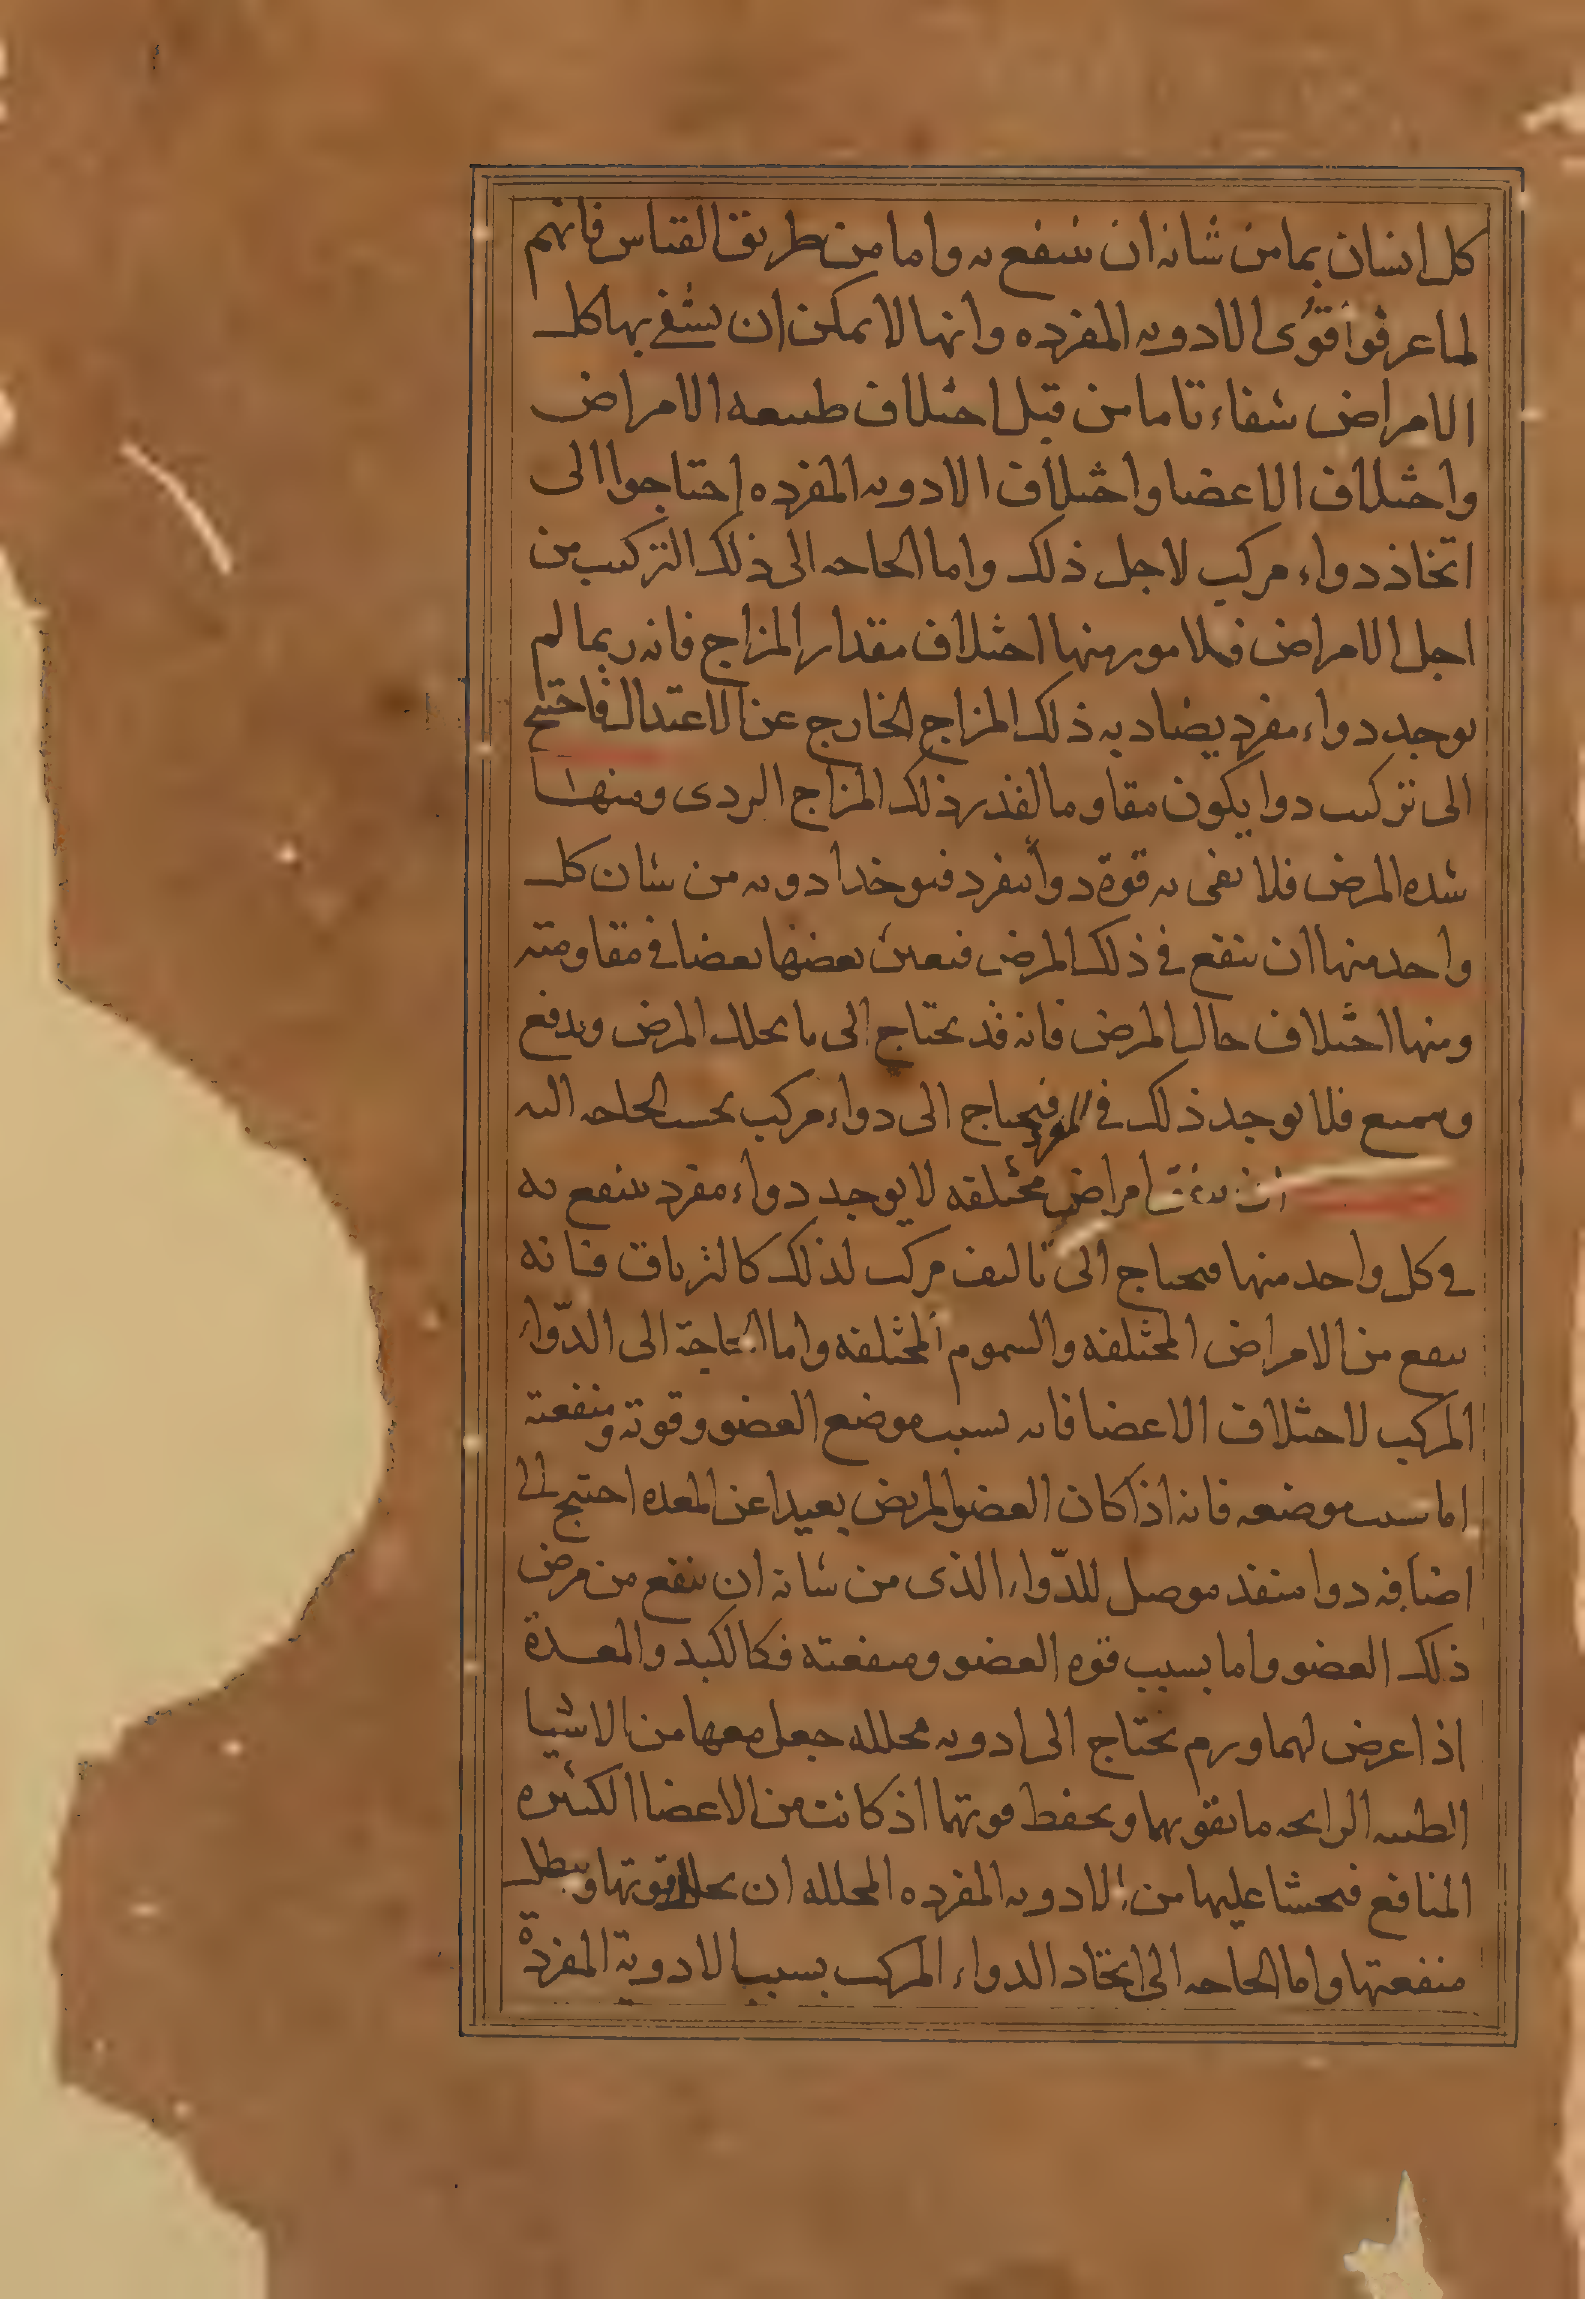 كل انسان بما من شانه ان ينتفع به واما من طريق القياس فانهم
لما عرفوا قوى الادويه المفرده وانها لا يمكن ان يشفى بها كل
الامراض شفاء تاما من قبل اختلاف طبيعه الامراض
واختلاف الاعضا واختلاف الادويه المفرده احتاجوا الى
اتخاذ دواء مركب لاجل ذلك واما الحاجه الى ذلك التركيب من
اجل الامراض فلامور منها اختلاف مقدار المزاج فانه ربما لم
يوجد دواء مفرد يضاد به ذلك المزاج الخارج عن الاعتدال فاحتيج
الى تركيب دوا يكون مقاوما لقدر ذلك المزاج الردى ومنها
شده المرض فلا يفى به قوة دوا منفرد فيوخذ ادويه من شان كل
واحد منها ان ينفع فى ذلك المرض فيعين بعضها بعضا فى مقاومته
ومنها اختلاف حال المرض فانه قد يحتاج الى ما يحلل المرض ويدفع
ويمنع فلا يوجد ذلك فى المفرد فيحتاج الى دواء مركب بحسب الحاجه اليه
امراض مختلفه لا يوجد دواء مفرد ينتفع به
فى كل واحد منها فيحتاج الى تاليف مركب لذلك كالترياق فانه
ينفع من الامراض المختلفه والسموم المختلفه واما الحاجة الى الدّواء
المركب لاختلاف الاعضا فانه بسبب موضع العضو وقوته ومنفعته
اما بسبب موضعه فانه اذا كان العضو المريض بعيدا عن المعده احتيج الى
اضافه دوا منفذ موصل للدّواء الذى من شانه ان ينفع من مرض
ذلك العضو واما بسبب قوه العضو ومنفعته فكالكبد والمعدة
اذا عرض لهما ورم يحتاج الى ادويه محلله جعل معها من الاشيا
الطيبه الرايحه ما يقويهما ويحفظ قوتهما اذ كانت من الاعضا الكثيره
المنافع فيخشا عليها من الادويه المفرده المحلله ان يحلل قوتها ويبطل
منفعتها واما الحاجه الى اتخاد الدواء المركب بسبب الادوية المفردة